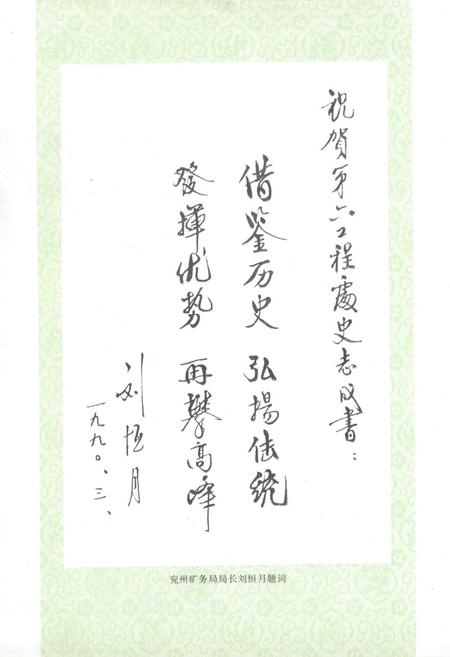 祝贺第六工程處史志成書：
借鉴历史 弘揚传统
發揮优势 再攀高峰
刘恒月
一九九〇.三、
兖州矿务局局长刘恒月题词